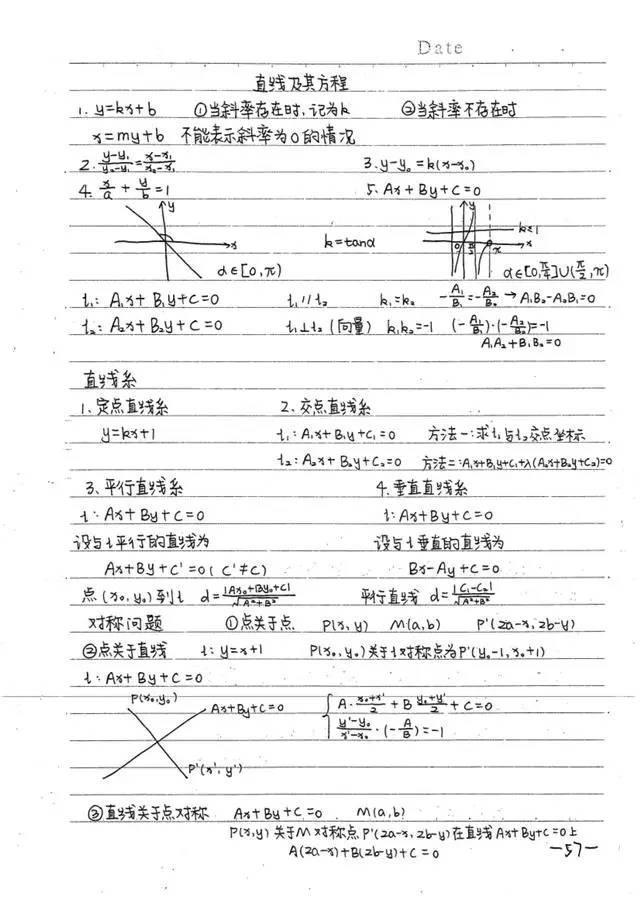 Date
直线及其方程
1. y=kx+b ①当斜率存在时,记为k ②当斜率不存在时
x=my+b 不能表示斜率为0的情况
2. (y-y₁)/(y₂-y₁)=(x-x₁)/(x₂-x₁) 3. y-y₀=k(x-x₀)
4. x/a + y/b =1 5. Ax+By+C=0
y x k=tanα y k=1 0 π/2 π x
α∈[0,π) α∈[0,π/4]∪(π/2,π)
l₁: A₁x+B₁y+C=0 l₁//l₂ k₁=k₂ -A₁/B₁=-A₂/B₂ → A₁B₂-A₂B₁=0
l₂: A₂x+B₂y+C=0 l₁⊥l₂(向量) k₁k₂=-1 (-A₁/B₁)·(-A₂/B₂)=-1
A₁A₂+B₁B₂=0
直线系
1、定点直线系 2、交点直线系
y=kx+1 l₁: A₁x+B₁y+C₁=0 方法一:求l₁与l₂交点坐标
l₂: A₂x+B₂y+C₂=0 方法二:A₁x+B₁y+C₁+λ(A₂x+B₂y+C₂)=0
3、平行直线系 4、垂直直线系
l: Ax+By+C=0 l: Ax+By+C=0
设与l平行的直线为 设与l垂直的直线为
Ax+By+C'=0(C'≠C) Bx-Ay+C=0
点(x₀,y₀)到l d=|Ax₀+By₀+C|/√(A²+B²) 平行直线 d=|C₁-C₂|/√(A²+B²)
对称问题 ①点关于点 P(x,y) M(a,b) P'(2a-x,2b-y)
②点关于直线 l: y=x+1 P(x₀,y₀)关于l对称点为P'(y₀-1,x₀+1)
l: Ax+By+C=0
P(x₀,y₀) Ax+By+C=0 { A·(x₀+x')/2+B·(y₀+y')/2+C=0
(y'-y₀)/(x'-x₀)·(-A/B)=-1
P'(x',y')
③直线关于点对称 Ax+By+C=0 M(a,b)
P(x,y)关于M对称点P'(2a-x,2b-y)在直线Ax+By+C=0上
A(2a-x)+B(2b-y)+C=0
-57-